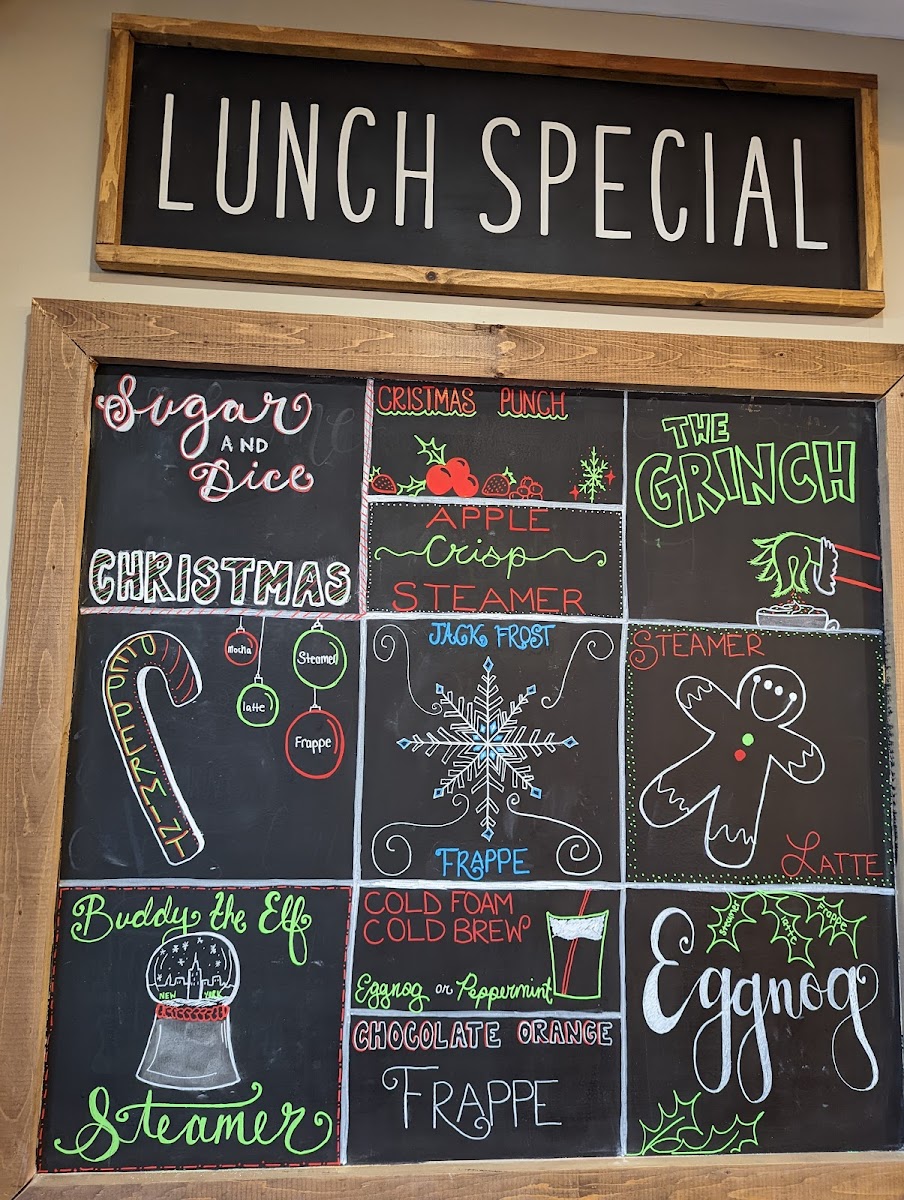 LUNCH SPECIAL
Sugar
AND
Dice
CHRISTMAS
CRISTMAS PUNCH
APPLE
Crisp
STEAMER
THE
GRINCH
PEPPERMINT
Mocha
Steamer
latte
Frappe
JACK FROST
FRAPPE
STEAMER
LATTE
Buddy the Elf
NEW YORK
Steamer
COLD FOAM
COLD BREW
Eggnog or Peppermint
CHOCOLATE ORANGE
FRAPPE
steamer
latte
frappe
Eggnog